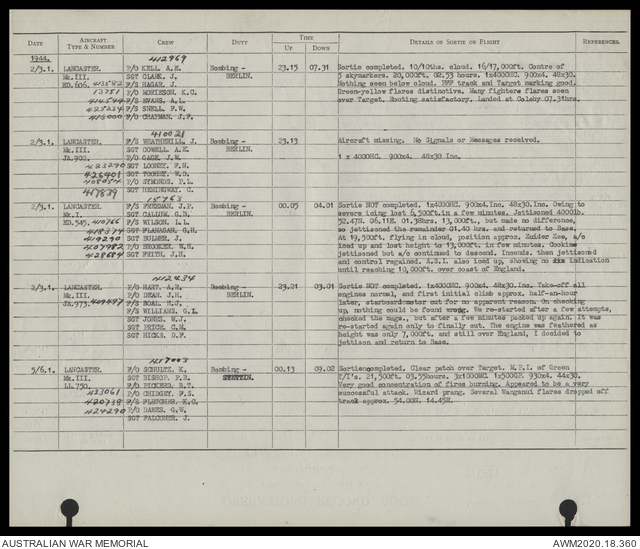 DATE AIRCRAFT TYPE & NUMBER CREW DUTY TIME UP DOWN DETAILS OF SORTIE OR FLIGHT REFERENCES.
1944. 412969
2/3.1. LANCASTER. P/O KELL, A.E. Bombing - 23.15 07.31 Sortie completed. 10/10ths. cloud. 16/17,000ft. Centre of
Mk.III. SGT CLARK, J. BERLIN. 5 skymarkers. 20,000ft. 02.53 hours. 1x4000HC. 900x4. 48x30.
ED.606. 413582 F/S HAGAR, J. Nothing seen below cloud. PFF track and Target marking good.
13751 P/O MORIESON, K.G. Green-yellow flares distinctive. Many fighters flares seen
414544 F/S EVANS, A.L. over Target. Routing satisfactory. Landed at Coleby 07.31hrs.
425234 F/S SNELL, F.W.
415000 F/O CHAPMAN, J.F.
410021
2/3.1. LANCASTER. F/S WEATHERILL, J. Bombing - 23.13 Aircraft missing. No Signals or Messages received.
Mk.III. SGT COWELL, A.E. BERLIN.
JA.902. F/O GAGE, J.W. 1 x 4000HC. 900x4. 48x30 Inc.
423290 SGT LOONEY, F.N.
426401 SGT TOOHEY, W.D.
408054 F/O SYMONDS, P.L.
417839 SGT HEMINGWAY, C.
15763
2/3.1. LANCASTER. F/S FREEMAN, J.P. Bombing - 00.05 04.01 Sortie NOT completed. 1x4000HC. 900x4.Inc. 48x30.Inc. Owing to
Mk.I. SGT CALLUM, G.D. BERLIN. severe icing lost 6,500ft.in a few minutes. Jettisoned 4000lb.
ED.545. 410766 F/S WILSON, L.L. 52.47N. 06.11E. 01.38hrs. 13,000ft., but made no difference,
418374 SGT FLANAGAN, G.H. so jettisoned the remainder 01.40 hrs. and returned to Base.
419290 SGT BULMER, J. At 19,500ft. flying in cloud, position approx. Zuider Zee, a/c
407982 F/O BROOKER, W.H. iced up and lost height to 13,000ft. in few minutes. Cookies
428684 SGT FEITH, J.H. jettisoned but a/c continued to descend. Incends. then jettisoned
and control regained. A.S.I. also iced up, showing no indication
until reaching 10,000ft. over coast of England.
412434
2/3.1. LANCASTER. P/O HART, A.R. Bombing - 23.21 03.01 Sortie NOT completed. 1x4000HC. 900x4. 48x30 Inc. Take-off all
Mk.III. P/O DEAN, J.H. BERLIN. engines normal, and first initial climb approx. half-an-hour
JA.973. 409497 F/S BOAL, H.J. later, starboard motor cut for no apparent reason. On checking
F/S WILLIAMS, G.I. up, nothing could be found wrong. We re-started after a few attempts,
SGT JONES, W.J. checked the mags., but after a few minutes packed up again. It was
SGT PRICE, G.M. re-started again only to finally cut. The engine was feathered as
SGT HICKS, D.F. height was only 7,000ft., and still over England, I decided to
jettison and return to Base.
417003
5/6.1. LANCASTER. P/O SCHULTZ, K. Bombing - 00.13 09.02 Sortie completed. Clear patch over Target. M.P.I. of Green
Mk.III. SGT BISHOP, P.R. STETTIN. T/I's. 21,500ft. 03.55hours. 3x1000MC. 1x500GP. 930x4. 44x30.
LL.750. F/O PICKERD, B.T. Very good concentration of fires burning. Appeared to be a very
423061 F/O CHIDGEY, F.S. successful attack. Wizard prang. Several Wanganui flares dropped off
420738 F/S FLETCHER, K.C. track approx. 54.00N. 14.45E.
424290 F/O DAWES, G.W.
SGT FALCONER, J.
AUSTRALIAN WAR MEMORIAL AWM2020.18.360